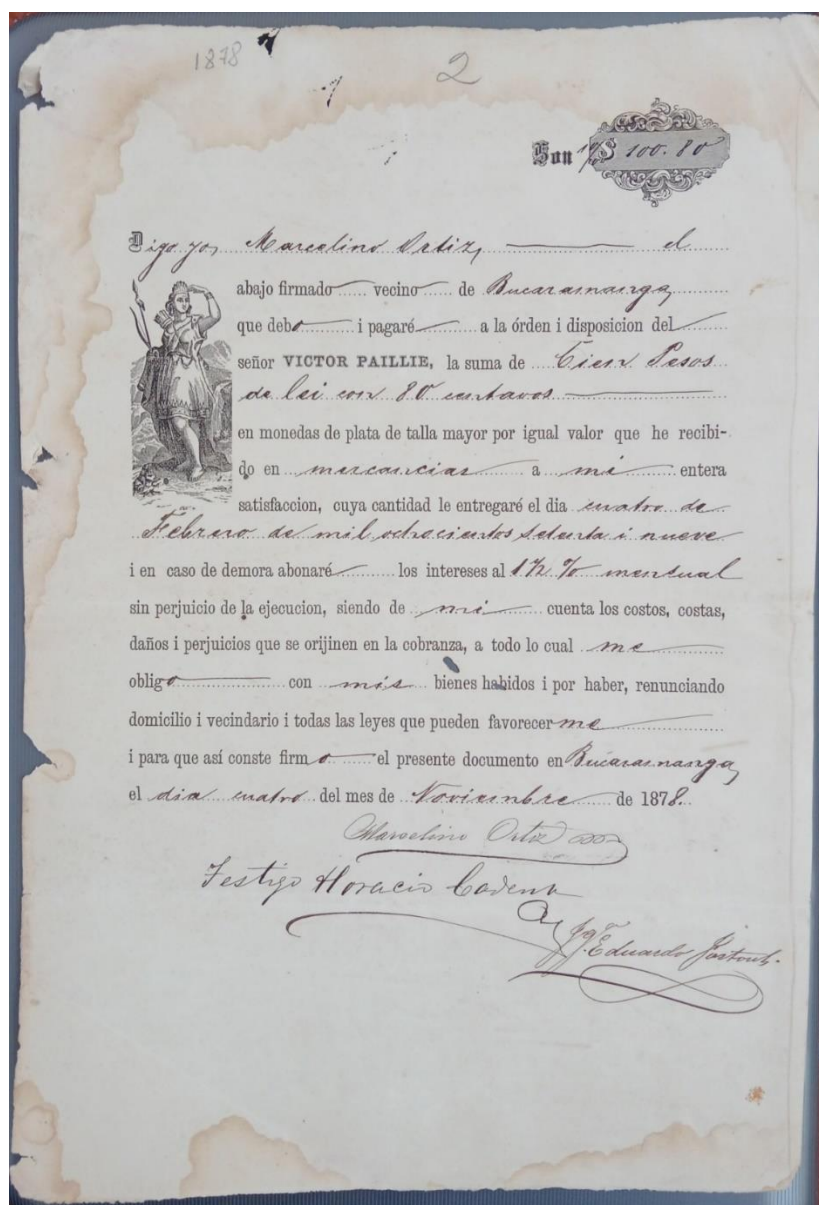 1878
2
Son $ 100.80
Digo yo, Marcelino Ortiz, el
abajo firmado vecino de Bucaramanga,
que debo i pagaré a la órden i disposicion del
señor VICTOR PAILLIE, la suma de Cien Pesos
de lei con 80 centavos
en monedas de plata de talla mayor por igual valor que he recibi-
do en mercancias a mi entera
satisfaccion, cuya cantidad le entregaré el dia cuatro de
Febrero de mil ochocientos setenta i nueve
i en caso de demora abonaré los intereses al 1½ % mensual
sin perjuicio de la ejecucion, siendo de mi cuenta los costos, costas,
daños i perjuicios que se orijinen en la cobranza, a todo lo cual me
obligo con mis bienes habidos i por haber, renunciando
domicilio i vecindario i todas las leyes que pueden favorecerme
i para que así conste firmo el presente documento en Bucaramanga,
el dia cuatro del mes de Noviembre de 1878.
Marcelino Ortiz
Testigo Horacio Cadena
Eduardo